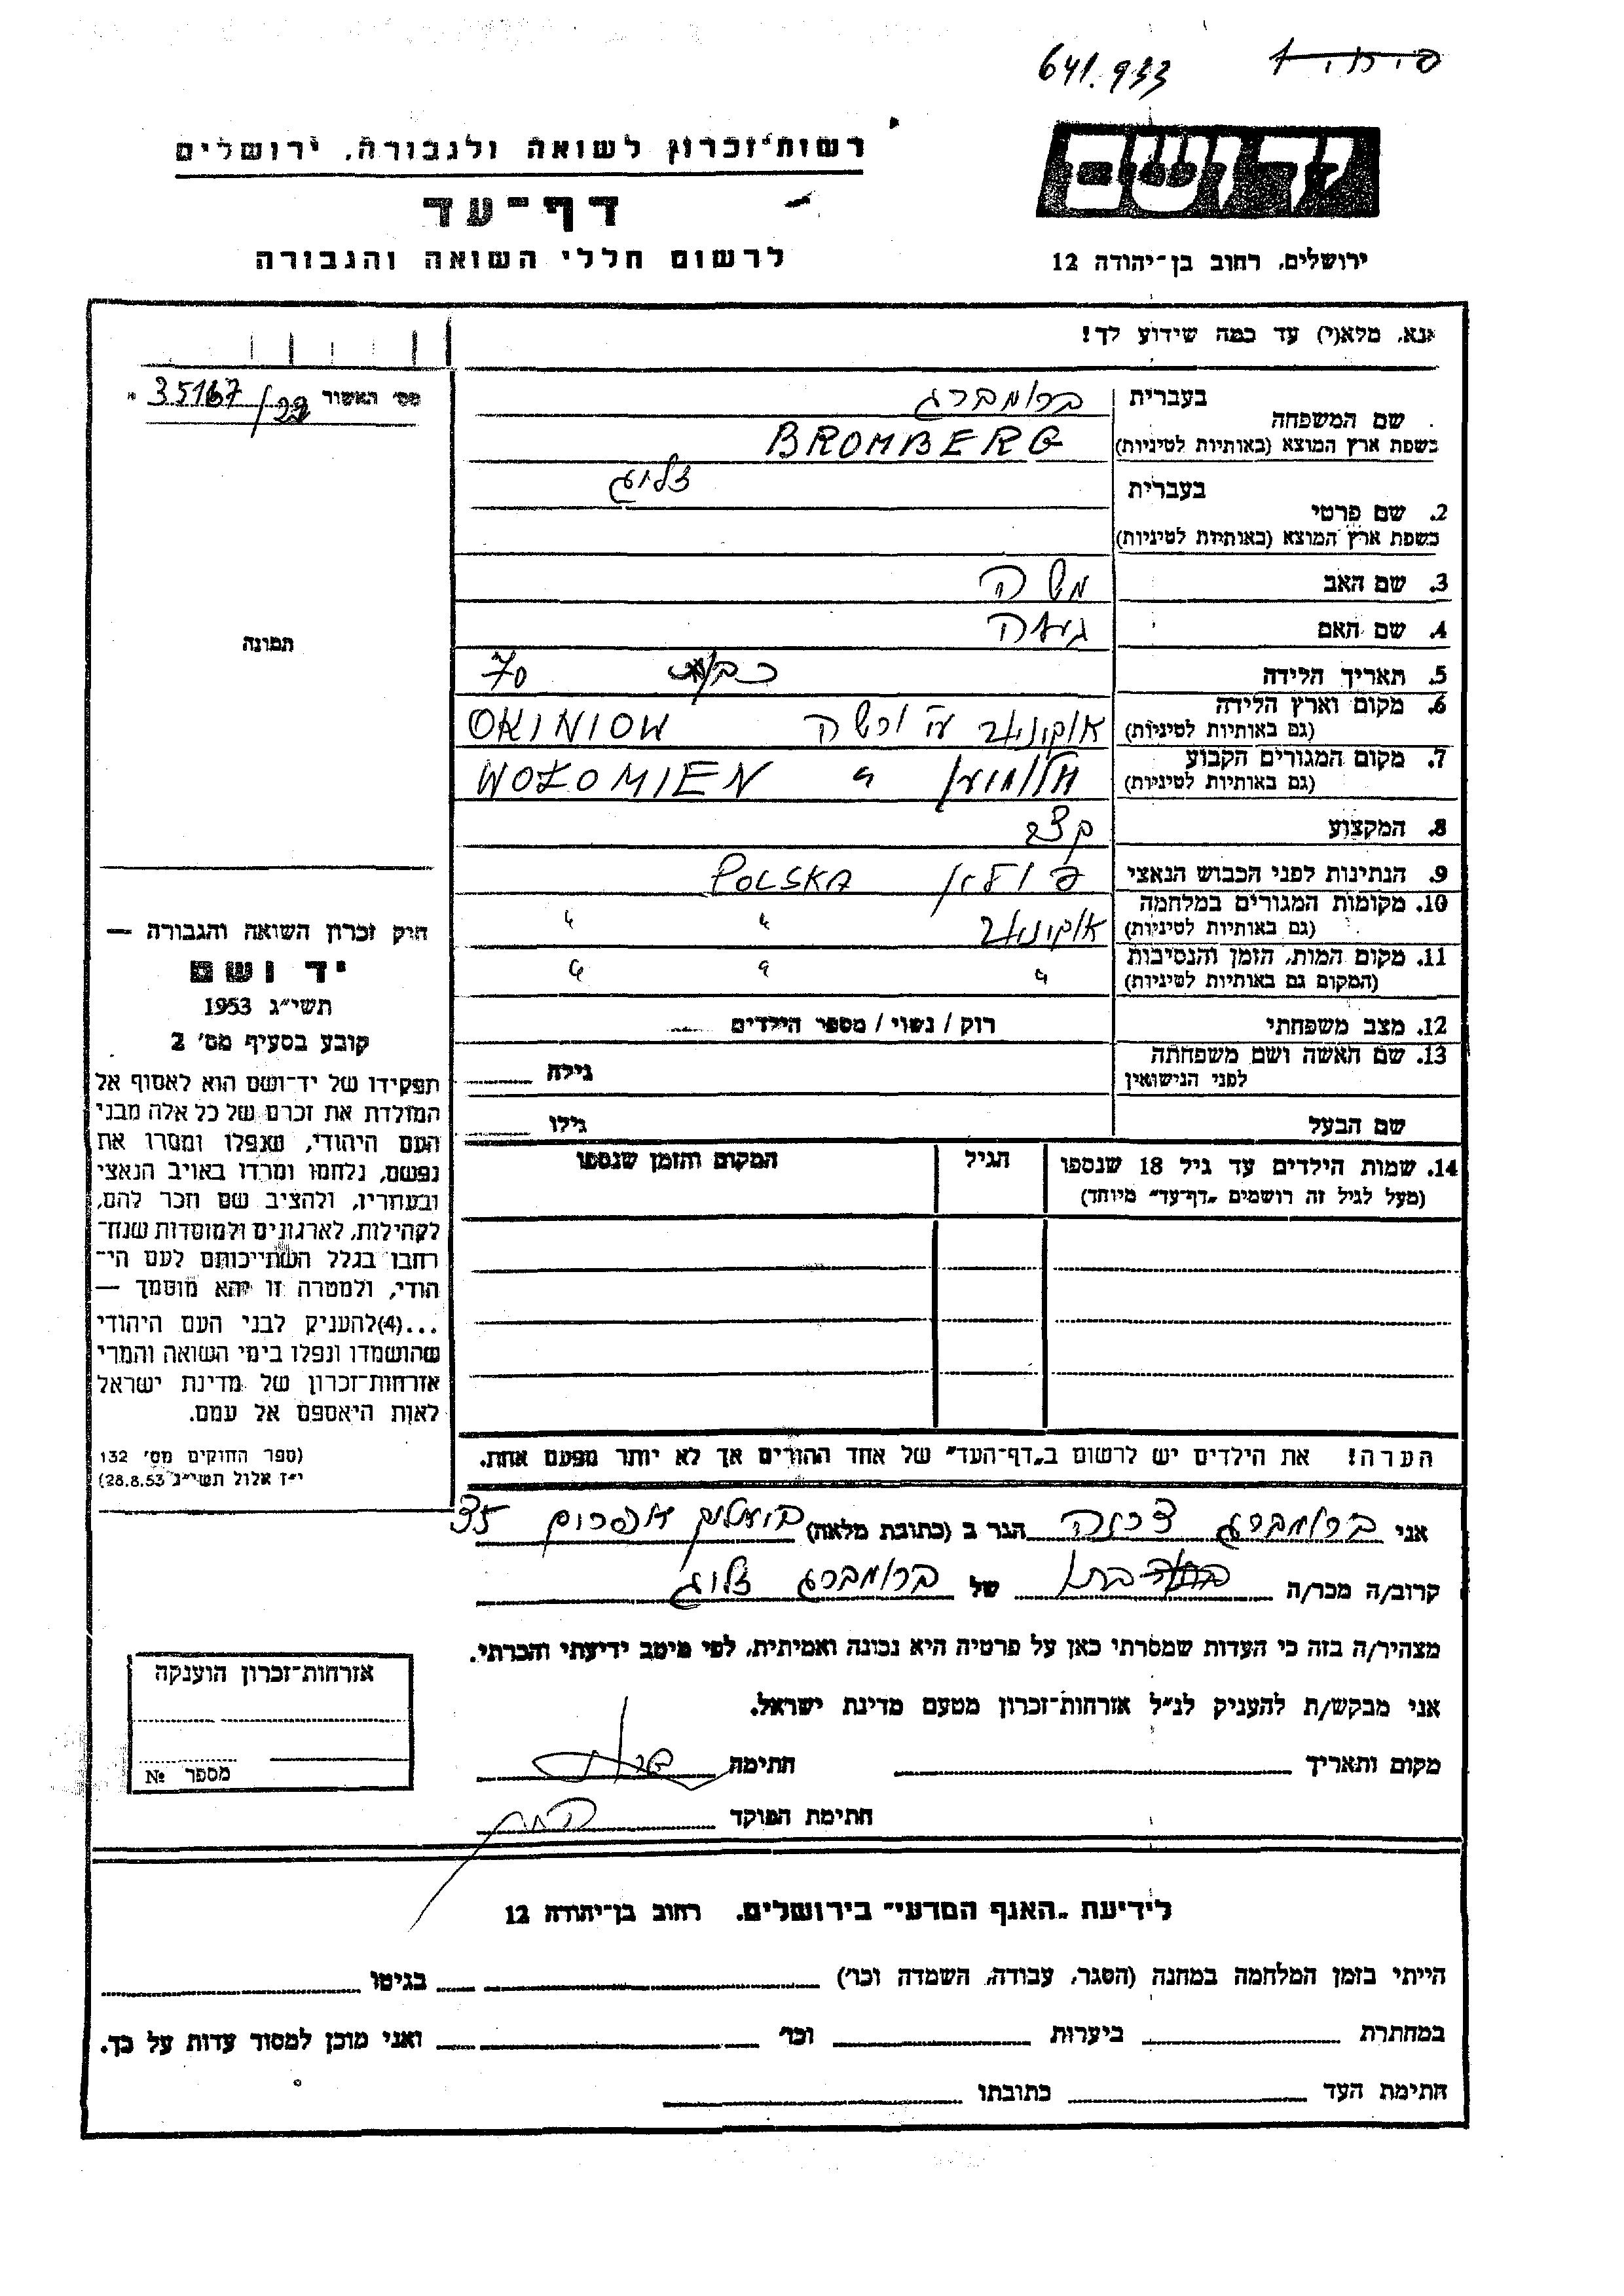 641.933
רשות־זכרון לשואה ולגבורה, ירושלים
יד ושם
דף־עד
לרשום חללי השואה והגבורה
ירושלים, רחוב בן־יהודה 12
אנא, מלא(י) עד כמה שידוע לך!
מס׳ האשור 35167/22
שם המשפחה
בעברית ברומברג
בשפת ארץ המוצא (באותיות לטיניות) BROMBERG
2. שם פרטי
בעברית זלוג
בשפת ארץ המוצא (באותיות לטיניות)
3. שם האב משה
4. שם האם
5. תאריך הלידה 70
6. מקום וארץ הלידה (גם באותיות לטיניות) אוקוניוב ע״י ורשה OKINIOW
7. מקום המגורים הקבוע (גם באותיות לטיניות) " WOŁOMIEN
8. המקצוע קצב
9. הנתינות לפני הכבוש הנאצי פולין POLSKA
10. מקומות המגורים במלחמה (גם באותיות לטיניות) אוקוניוב " "
11. מקום המות, הזמן והנסיבות (המקום גם באותיות לטיניות) " " "
12. מצב משפחתי רוק / נשוי / מספר הילדים
13. שם האשה ושם משפחתה לפני הנישואין גילה
שם הבעל גילו
14. שמות הילדים עד גיל 18 שנספו הגיל המקום והזמן שנספו
(מעל לגיל זה רושמים „דף־עד" מיוחד)
הערה! את הילדים יש לרשום ב„דף־העד" של אחד ההורים אך לא יותר מפעם אחת.
תמונה
חיק זכרון השואה והגבורה —
יד ושם
תשי״ג 1953
קובע בסעיף מס׳ 2
תפקידו של יד־ושם הוא לאסוף אל
המולדת את זכרם של כל אלה מבני
העם היהודי, שנפלו ומסרו את
נפשם, נלחמו ומרדו באויב הנאצי
ובעוזריו, ולהציב שם וזכר להם,
לקהילות, לארגונים ולמוסדות שנח־
רבו בגלל השתייכותם לעם הי־
הודי, ולמטרה זו יהא מוסמך —
...(4)להעניק לבני העם היהודי
שהושמדו ונפלו בימי השואה והמרי
אזרחות־זכרון של מדינת ישראל
לאות היאספם אל עמם.
(ספר החוקים מס׳ 132
י״ז אלול תשי״ג 28.8.53)
אני ברומברג הגר ב (כתובת מלאה) 35
קרוב/ה מכר/ה של ברומברג זלוג
מצהיר/ה בזה כי העדות שמסרתי כאן על פרטיה היא נכונה ואמיתית, לפי מיטב ידיעתי והכרתי.
אני מבקש/ת להעניק לנ״ל אזרחות־זכרון מטעם מדינת ישראל.
מקום ותאריך חתימה
חתימת הפוקד
אזרחות־זכרון הוענקה
מספר №
לידיעת „האגף המדעי" בירושלים, רחוב בן־יהודה 12
הייתי בזמן המלחמה במחנה (הסגר, עבודה, השמדה וכו׳) בגיטו
במחתרת ביערות וכו׳ ואני מוכן למסור עדות על כך.
חתימת העד כתובתו